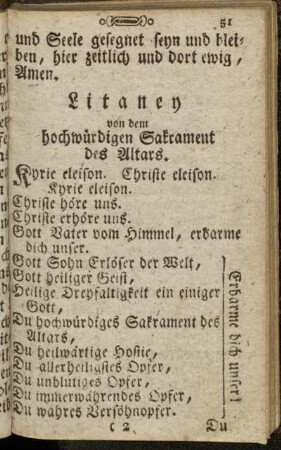 51
und Seele gesegnet seyn und blei-
ben, hier zeitlich und dort ewig,
Amen.
Litaney
von dem
hochwürdigen Sakrament
des Altars.
Kyrie eleison. Christe eleison.
Kyrie eleison.
Christe höre uns.
Christe erhöre uns.
Gott Vater vom Himmel, erbarme
dich unser.
Gott Sohn Erlöser der Welt,
Gott heiliger Geist,
Heilige Dreyfaltigkeit ein einiger
Gott,
Du hochwürdiges Sakrament des
Altars,
Du heilwärtige Hostie,
Du allerheiligstes Opfer,
Du unblutiges Opfer,
Du immerwährendes Opfer,
Du wahres Versöhnopfer.
Erbarme dich unser!
C 2
Du